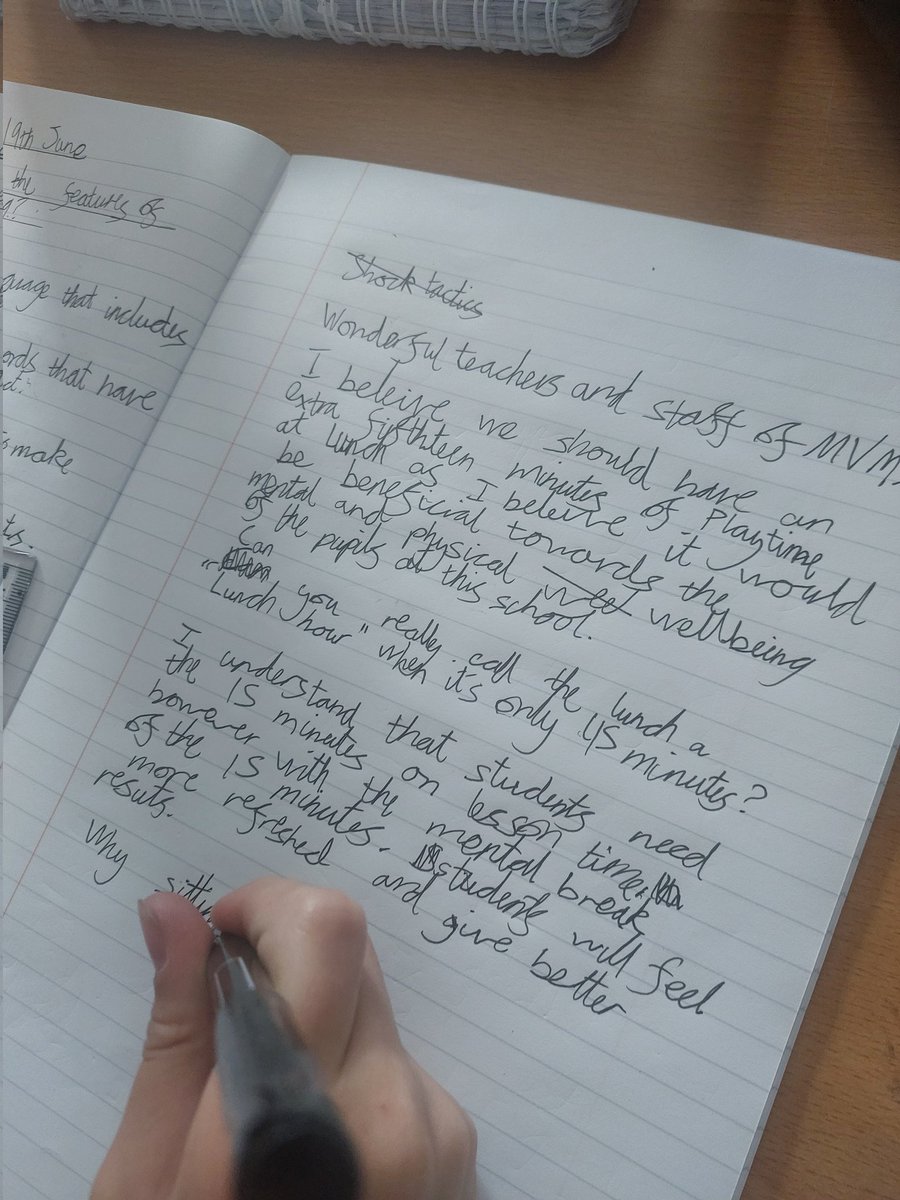 19th June
the features of
guage that includes
ords that have
make
Shock tactics
Wonderful teachers and staff of MVM
I beleive we should have an
extra fifthteen minutes of Playtime
at Lunch as I beleive it would
be beneficial towards the
mental and physical wellbeing
of the pupils at this school.
Can you really call the lunch a
"Lunch hour" when it's only 45 minutes?
I understand that students need
the 15 minutes on lesson time
however with the mental break
of the 15 minutes. students will feel
more refreshed and give better
results.
Why sittin